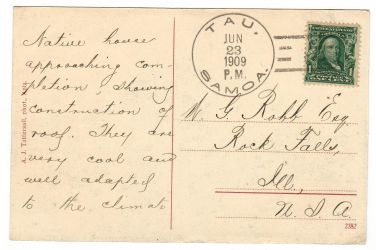 Native house
approaching com-
pletion. Showing
construction of
roof. They are
very cool and
well adapted
to the climate
A. J. Tattersall, phot.
TAU,
JUN
23
1909
P.M.
SAMOA.
W. G. Robb Esq
Rock Falls,
Ill,
U.S.A
2382